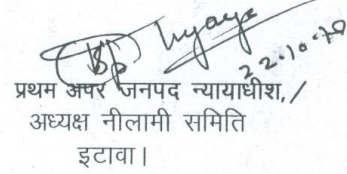 22.10.70
प्रथम अपर जनपद न्यायाधीश, /
अध्यक्ष नीलामी समिति
इटावा।